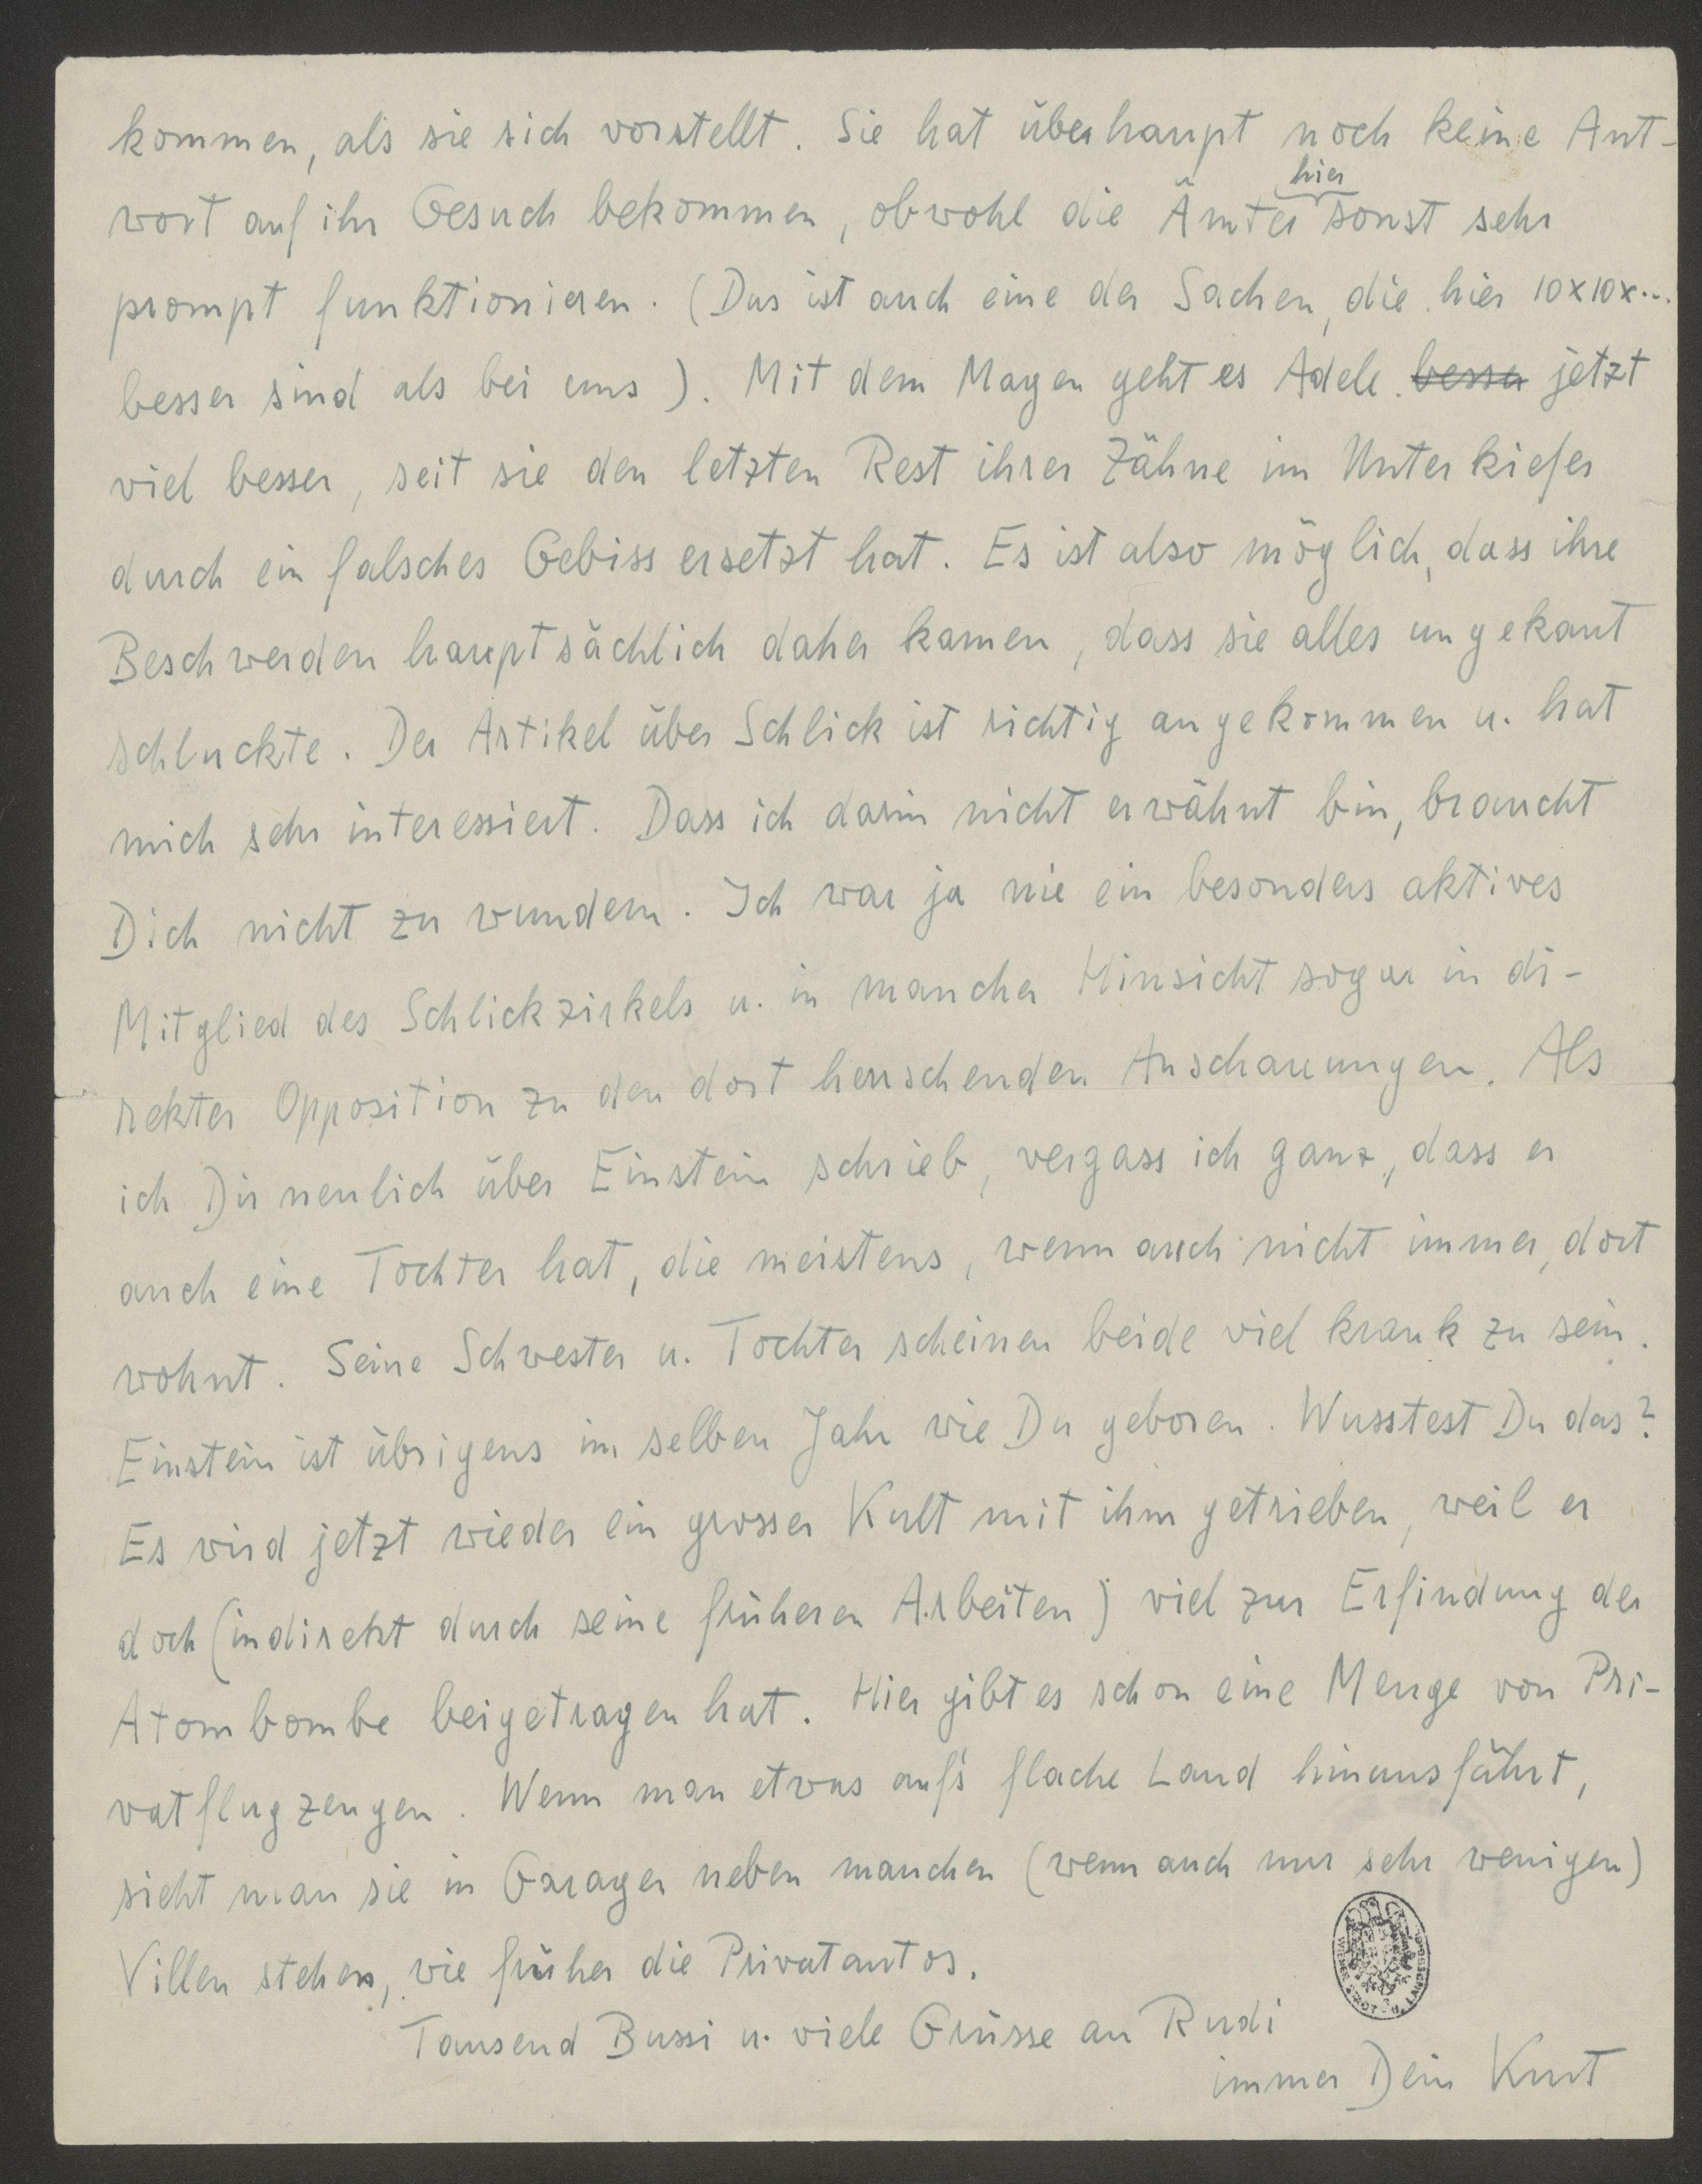 kommen, als sie sich vorstellt. Sie hat überhaupt noch keine Ant-
hier
wort auf ihr Gesuch bekommen, obwohl die Ämter sonst sehr
prompt funktionieren. (Das ist auch eine der Sachen, die hier 10x10x...
besser sind als bei uns). Mit dem Magen geht es Adele besser jetzt
viel besser, seit sie den letzten Rest ihrer Zähne im Unterkiefer
durch ein falsches Gebiss ersetzt hat. Es ist also möglich, dass ihre
Beschwerden hauptsächlich daher kamen, dass sie alles ungekaut
schluckte. Der Artikel über Schlick ist richtig angekommen u. hat
mich sehr interessiert. Dass ich darin nicht erwähnt bin, braucht
Dich nicht zu wundern. Ich war ja nie ein besonders aktives
Mitglied des Schlickzirkels u. in mancher Hinsicht sogar in di-
rekter Opposition zu den dort herrschenden Anschauungen. Als
ich Dir neulich über Einstein schrieb, vergass ich ganz, dass er
auch eine Tochter hat, die meistens, wenn auch nicht immer, dort
wohnt. Seine Schwester u. Tochter scheinen beide viel krank zu sein.
Einstein ist übrigens im selben Jahr wie Du geboren. Wusstest Du das?
Es wird jetzt wieder ein grosser Kult mit ihm getrieben, weil er
doch (indirekt durch seine früheren Arbeiten) viel zur Erfindung der
Atombombe beigetragen hat. Hier gibt es schon eine Menge von Pri-
vatflugzeugen. Wenn man etwas auf's flache Land hinausfährt,
sieht man sie in Garagen neben manchen (wenn auch nur sehr wenigen)
Villen stehen, wie früher die Privatautos.
Tausend Bussi u. viele Grüsse an Rudi
immer Dein Kurt